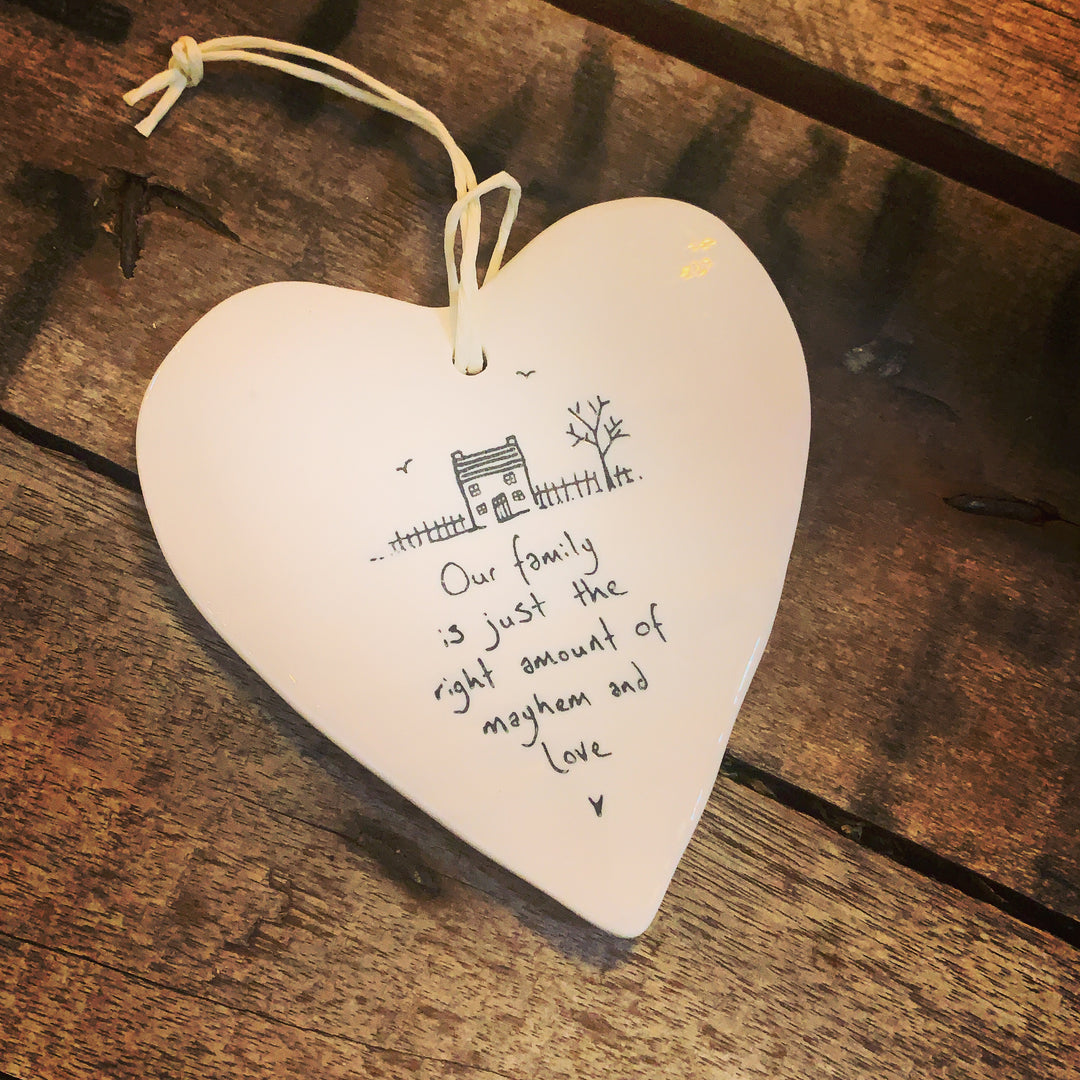 Our family
is just the
right amount of
mayhem and
love